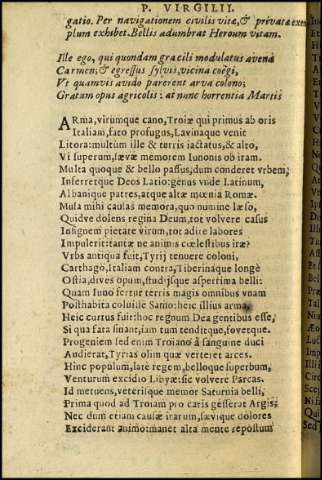 P. VIRGILII.
gatio. Per navigationem civilis vitæ, & privatæ exem
plum exhibet. Bellis adumbrat Heroum vitam.
Ille ego, qui quondam gracili modulatus avena
Carmen; & egressus sylvis, vicina coëgi,
Vt quamvis avido parerent arva colono;
Gratum opus agricolis: at nunc horrentia Martis
ARma, virumque cano, Troiæ qui primus ab oris
Italiam, fato profugus, Lavinaque venit
Litora: multum ille & terris iactatus, & alto,
Vi superum, sævæ memorem Iunonis ob iram.
Multa quoque & bello passus, dum conderet vrbem;
Inferretque Deos Latio: genus vnde Latinum,
Albanique patres, atque altæ mœnia Romæ.
Musa mihi caussas memora, quo numine læso,
Quidve dolens regina Deum, tot volvere casus
Insignem pietate virum, tot adire labores
Impulerit: tantæ ne animis cœlestibus iræ?
Vrbs antiqua fuit, Tyrij tenuere coloni,
Carthago, Italiam contra, Tiberinaque longè
Ostia, dives opum, studijsque asperrima belli:
Quam Iuno fertur terris magis omnibus vnam
Posthabita coluisse Samo: heic illius arma,
Heic currus fuit: hoc regnum Dea gentibus esse,
Si qua fata sinant, iam tum tenditque, fovetque.
Progeniem sed enim Troiano à sanguine duci
Audierat, Tyrias olim quæ verteret arces.
Hinc populum, latè regem, belloque superbum,
Venturum excidio Libyæ: sic volvere Parcas.
Id metuens, veterisque memor Saturnia belli,
Prima quod ad Troiam pro caris gesserat Argis;
Nec dum etiam caussæ irarum, sævique dolores
Exciderant animo: manet alta mente repostum